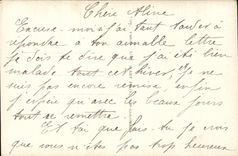 Chère Aline
Excuse-moi si j'ai tant tarder à
repondre a ton aimable lettre
je dois te dire que j'ai été bien
malade tout cet hiver, et je ne
suis pas encore remise, enfin
j'espère qu'avec les beaux jours
tout se remettra.
Et toi que fais-tu je vois
que vous n'êtes pas trop heureux